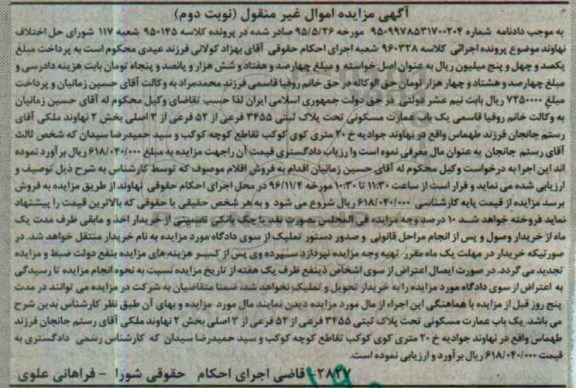 آگهی مزایده اموال غیر منقول (نوبت دوم)
به موجب دادنامه شماره ۹۵۰۹۹۷۸۵۳۱۷۰۰۲۰۴ مورخه ۹۵/۵/۲۶ صادر شده در پرونده کلاسه ۹۵۰۱۴۵ شعبه ۱۱۷ شورای حل اختلاف
نهاوند موضوع پرونده اجرائی کلاسه ۹۶۰۳۲۸ شعبه اجرای احکام حقوقی آقای بهزاد کولانی فرزند عیدی محکوم است به پرداخت مبلغ
یکصد و چهل و پنج میلیون ریال به عنوان اصل خواسته و مبلغ چهارصد و هفتاد و شش هزار و پانصد و پنجاه تومان بابت هزینه دادرسی و
مبلغ چهارصد و هشتاد و چهار هزار تومان حق الوکاله در حق خانم روفیا قاسمی فرزند محمدمراد به وکالت آقای حسین زمانیان و پرداخت
مبلغ ۷۲۵۰۰۰۰ ریال بابت نیم عشر دولتی در حق دولت جمهوری اسلامی ایران لذا حسب تقاضای وکیل محکوم له آقای حسین زمانیان
به وکالت خانم روفیا قاسمی یک باب عمارت مسکونی تحت پلاک ثبتی ۳۴۵۵ فرعی از ۵۲ فرعی از ۳ اصلی بخش ۲ نهاوند ملکی آقای
رستم جانجان فرزند طهماس واقع در نهاوند جوادیه خ ۲۰ متری کوی کوکب تقاطع کوچه کوکب و سید حمیدرضا سیدان که شخص ثالث
آقای رستم جانجان به عنوان مال معرفی نموده است وارزیاب دادگستری قیمت آن راجهت مزایده به مبلغ ۶۱۸/۰۴۰/۰۰۰ ریال برآورد نموده
اند این اجرا به درخواست وکیل محکوم له آقای حسین زمانیان اقدام به فروش اقلام موصوف که توسط کارشناسی به شرح ذیل توصیف و
ارزیابی شده می نماید و قرار است از ساعت ۱۱:۳۰ تا ۱۰:۳۰ مورخه ۹۶/۱۱/۴ در محل اجرای احکام حقوقی نهاوند از طریق مزایده به فروش
برسد مزایده از قیمت پایه کارشناسی ۶۱۸/۰۴۰/۰۰۰ ریال شروع می شود و به هر شخص حقیقی یا حقوقی که بالاترین قیمت را پیشنهاد
نماید فروخته خواهد شد ۱۰ درصد وجه مزایده فی المجلس بصورت نقد یا چک بانکی تضمینی از خریدار اخذ و مابقی ظرف مدت یک
ماه از خریدار وصول و پس از انجام مراحل قانونی و صدور دستور تملیک از سوی دادگاه مورد مزایده به نام خریدار منتقل خواهد شد. در
صورتیکه خریدار در مهلت یک ماه مقرر تهیه وجه مزایده نپردازد سپرده وی پس از کسر هزینه های مزایده بنفع دولت ضبط و مزایده
تجدید می گردد. در صورت ایصال اعتراض از سوی اشخاص ذینفع ظرف یک هفته از تاریخ مزایده نسبت به نحوه انجام مزایده تا رسیدگی
به اعتراض از سوی دادگاه مورد مزایده را به خریدار تحویل و تملیک نخواهد شد، ضمنا متقاضیان به شرکت در مزایده می توانند در مدت
پنج روز قبل از مزایده با هماهنگی این اجراء از مال مورد مزایده دیدن نمایند مال مورد مزایده و بهای آن طبق نظر کارشناس بدین شرح
می باشد. یک باب عمارت مسکونی تحت پلاک ثبتی ۳۴۵۵ فرعی از ۵۲ فرعی از ۳ اصلی بخش ۲ نهاوند ملکی آقای رستم جانجان فرزند
طهماس واقع در نهاوند جوادیه خ ۲۰ متری کوی کوکب تقاطع کوچه کوکب و سید حمیدرضا سیدان که کارشناس رسمی دادگستری به
قیمت ۶۱۸/۰۴۰/۰۰۰ ریال برآورد و ارزیابی نموده است.
۲۸۲۷ - قاضی اجرای احکام حقوقی شورا - فراهانی علوی